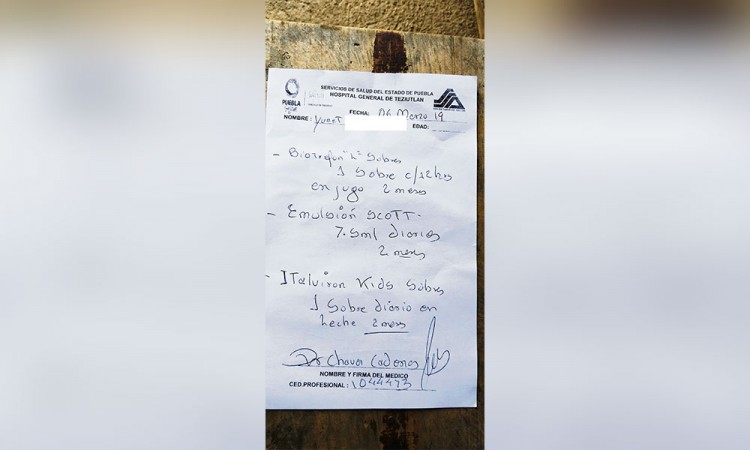 SERVICIOS DE SALUD DEL ESTADO DE PUEBLA
HOSPITAL GENERAL DE TEZIUTLAN
PUEBLA
FECHA: 06 Marzo 19
NOMBRE: Yuret
EDAD:
- Biotrefon "L" Sobres
1 Sobre c/12 hrs
en jugo 2 meses
- Emulsión Scott-
7.5ml diarios
2 meses
- Italviron Kids Sobres
1 Sobre diario en
Leche 2 meses
Dr Chavez Cadenas
NOMBRE Y FIRMA DEL MEDICO
CED.PROFESIONAL: 1044473